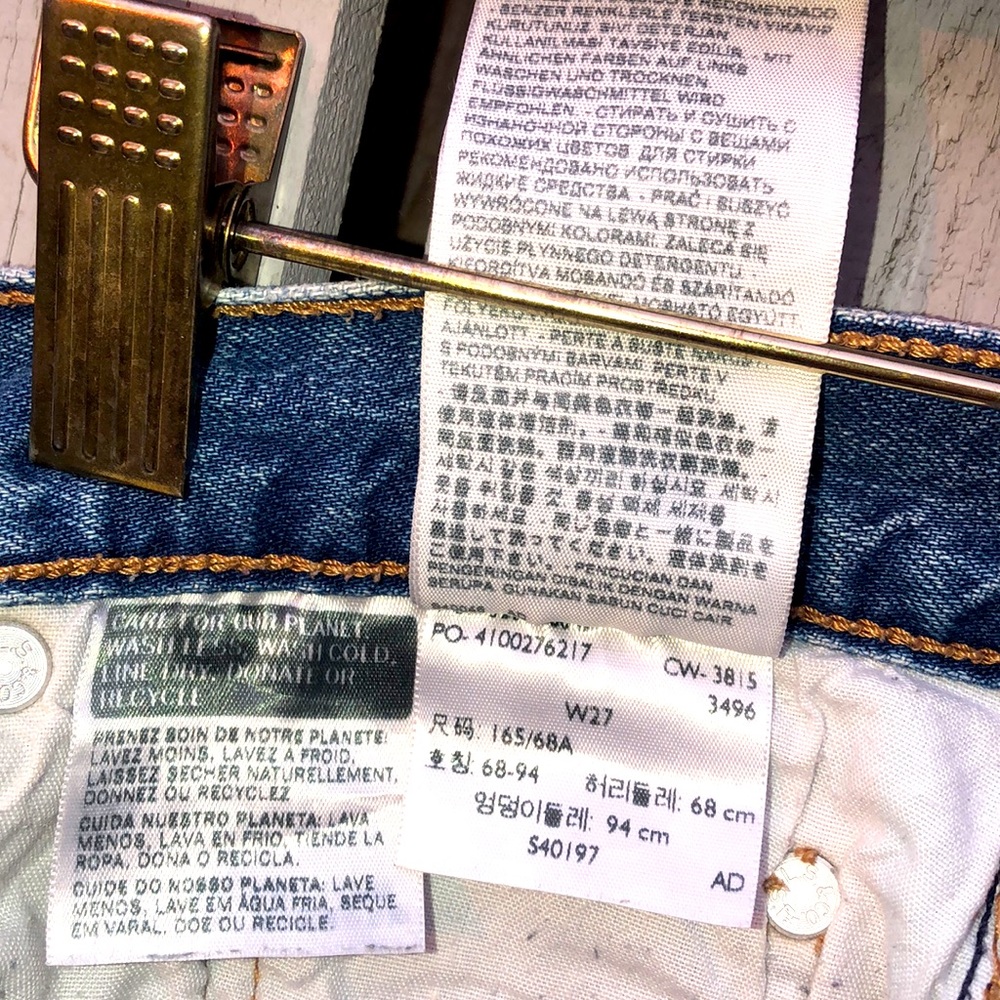 KURUTUNUZ. SIVI DETERJAN
KULLANILMASI TAVSİYE EDİLİR. MIT
ÄHNLICHEN FARBEN AUF LINKS
WASCHEN UND TROCKNEN.
FLÜSSIGWASCHMITTEL WIRD
EMPFOHLEN - СТИРАТЬ И СУШИТЬ С
ИЗНАНОЧНОЙ СТОРОНЫ С ВЕЩАМИ
ПОХОЖИХ ЦВЕТОВ. ДЛЯ СТИРКИ
РЕКОМЕНДОВАНО ИСПОЛЬЗОВАТЬ
ЖИДКИЕ СРЕДСТВА - PRAĆ I SUSZYĆ
WYWRÓCONE NA LEWĄ STRONĘ Z
PODOBNYMI KOLORAMI. ZALECA SIĘ
UŻYCIE PŁYNNEGO DETERGENTU -
KIFORDÍTVA MOSANDÓ ÉS SZÁRÍTANDÓ
MOSHATÓ EGYÜTT.
AJÁNLOTT - PERTE A SUŠTE
S PODOBNÝMI BARVAMI. PERTE V
TEKUTÉM PRACÍM PROSTŘEDKU.
사용하세요 - 同じ色物と一緒に製品を
裏返して洗ってください。液体洗剤を
ご使用下さい。 PENCUCIAN DAN
PENGERINGAN DIBALIK DENGAN WARNA
SERUPA. GUNAKAN SABUN CUCI CAIR
CARE FOR OUR PLANET
WASH LESS, WASH COLD,
LINE DRY, DONATE OR
RECYCLE
PRENEZ SOIN DE NOTRE PLANÈTE:
LAVEZ MOINS, LAVEZ À FROID,
LAISSEZ SÉCHER NATURELLEMENT,
DONNEZ OU RECYCLEZ
CUIDA NUESTRO PLANETA: LAVA
MENOS, LAVA EN FRÍO, TIENDE LA
ROPA, DONA O RECICLA.
CUIDE DO NOSSO PLANETA: LAVE
MENOS, LAVE EM ÁGUA FRIA, SEQUE
EM VARAL, DOE OU RECICLE.
PO- 4100276217
CW- 3815
3496
W27
尺码: 165/68A
호칭: 68-94 허리둘레: 68 cm
엉덩이둘레: 94 cm
540197
AD